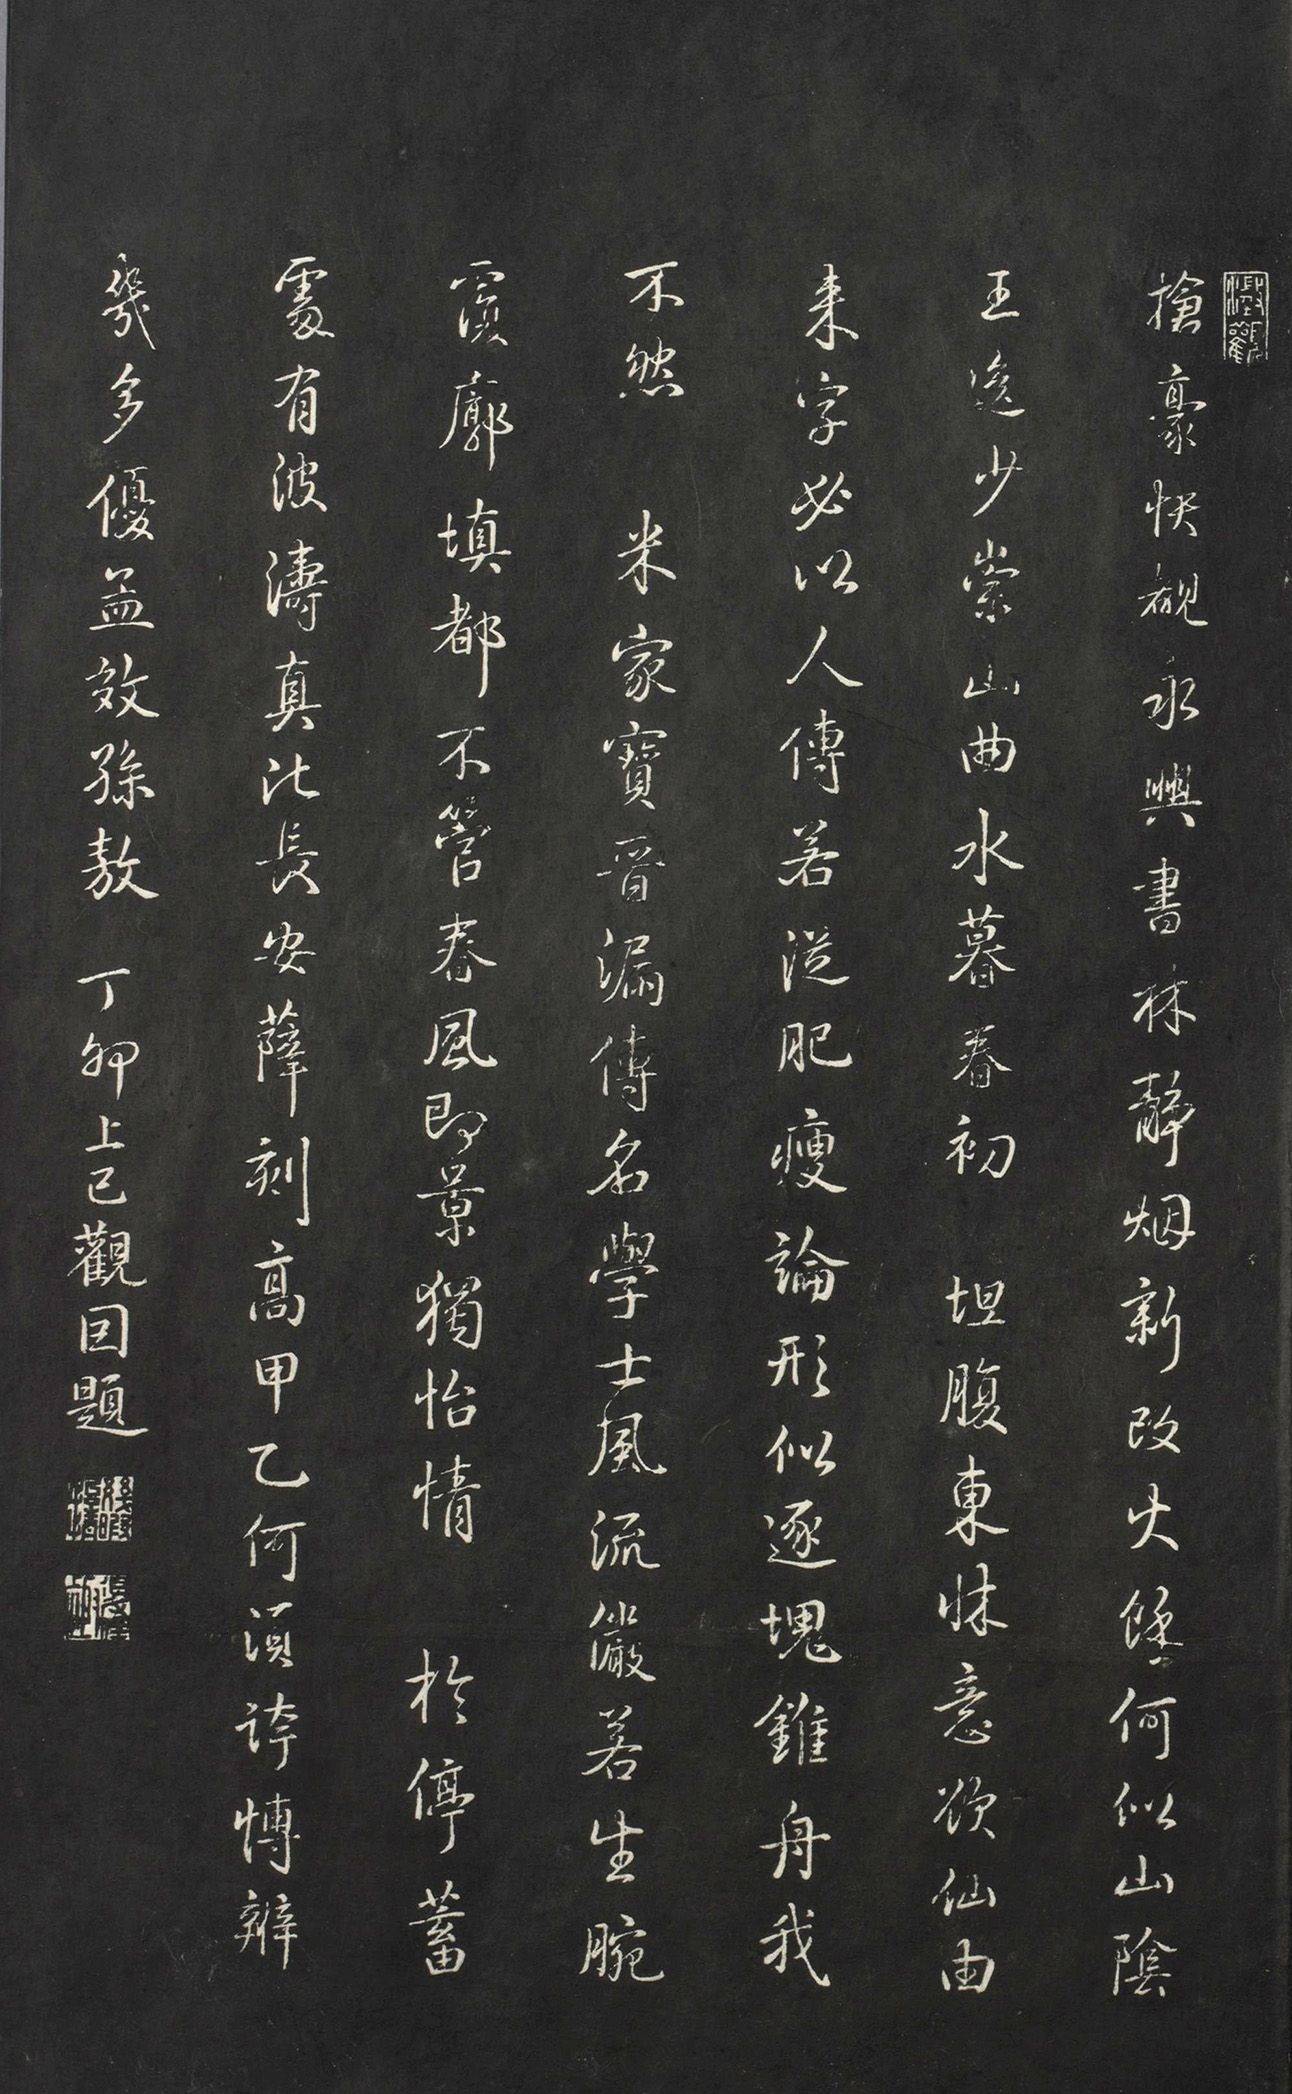 澂觀
搶豪快覩永興書林靜烟新改火餘何似山陰
王逸少崇山曲水暮春初　坦腹東牀意欲仙由
来字必以人傳若從肥瘦論形似逐塊錐舟我
不然　米家寶晋漏傳名學士風流儼若生腕
裏廓填都不管春風即景獨怡情　於停蓄
處有波濤真比長安薛刻高甲乙何須誇博辨
幾多優孟效孫敖　丁卯上巳觀因題